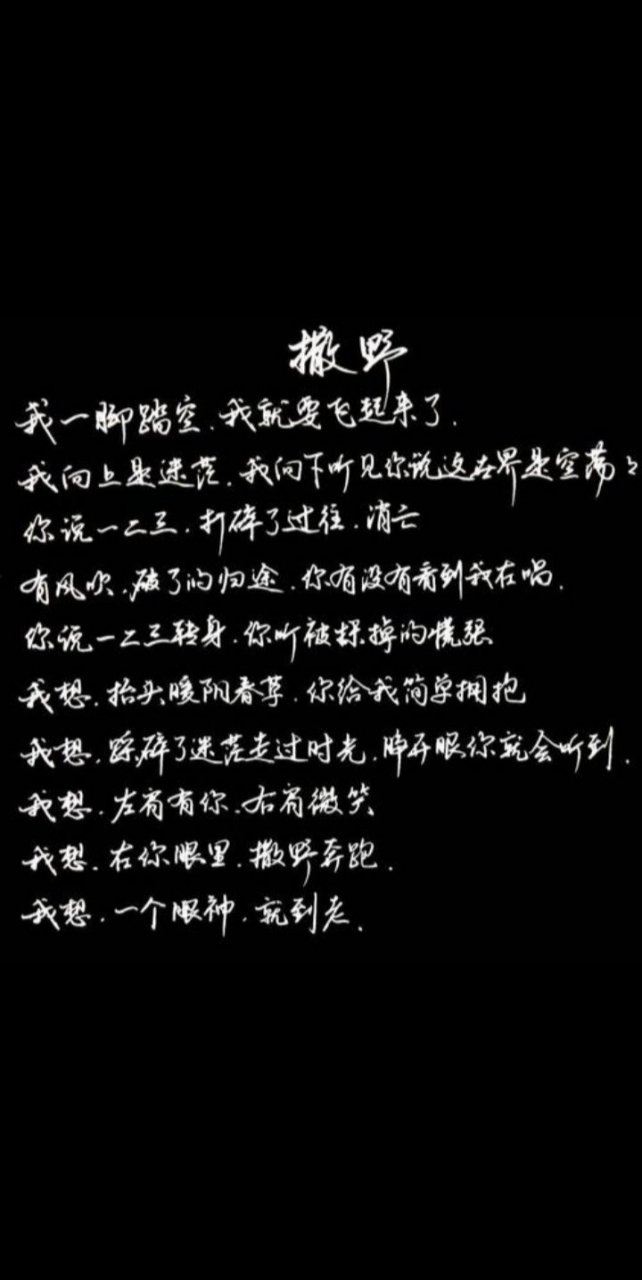 撒野
我一脚踏空、我就要飞起来了.
我向上是迷茫.我向下听见你说这世界是空荡々
你说一二三.打碎了过往.消亡
有风吹、破了的归途.你有没有看到我在唱.
你说一二三转身.你听被踩掉的慌张
我想.抬头暖阳春草.你给我简单拥抱
我想.踩碎了迷茫走过时光.睁开眼你就会听到.
我想.左肩有你.右肩微笑
我想.在你眼里.撒野奔跑.
我想.一个眼神.就到老.